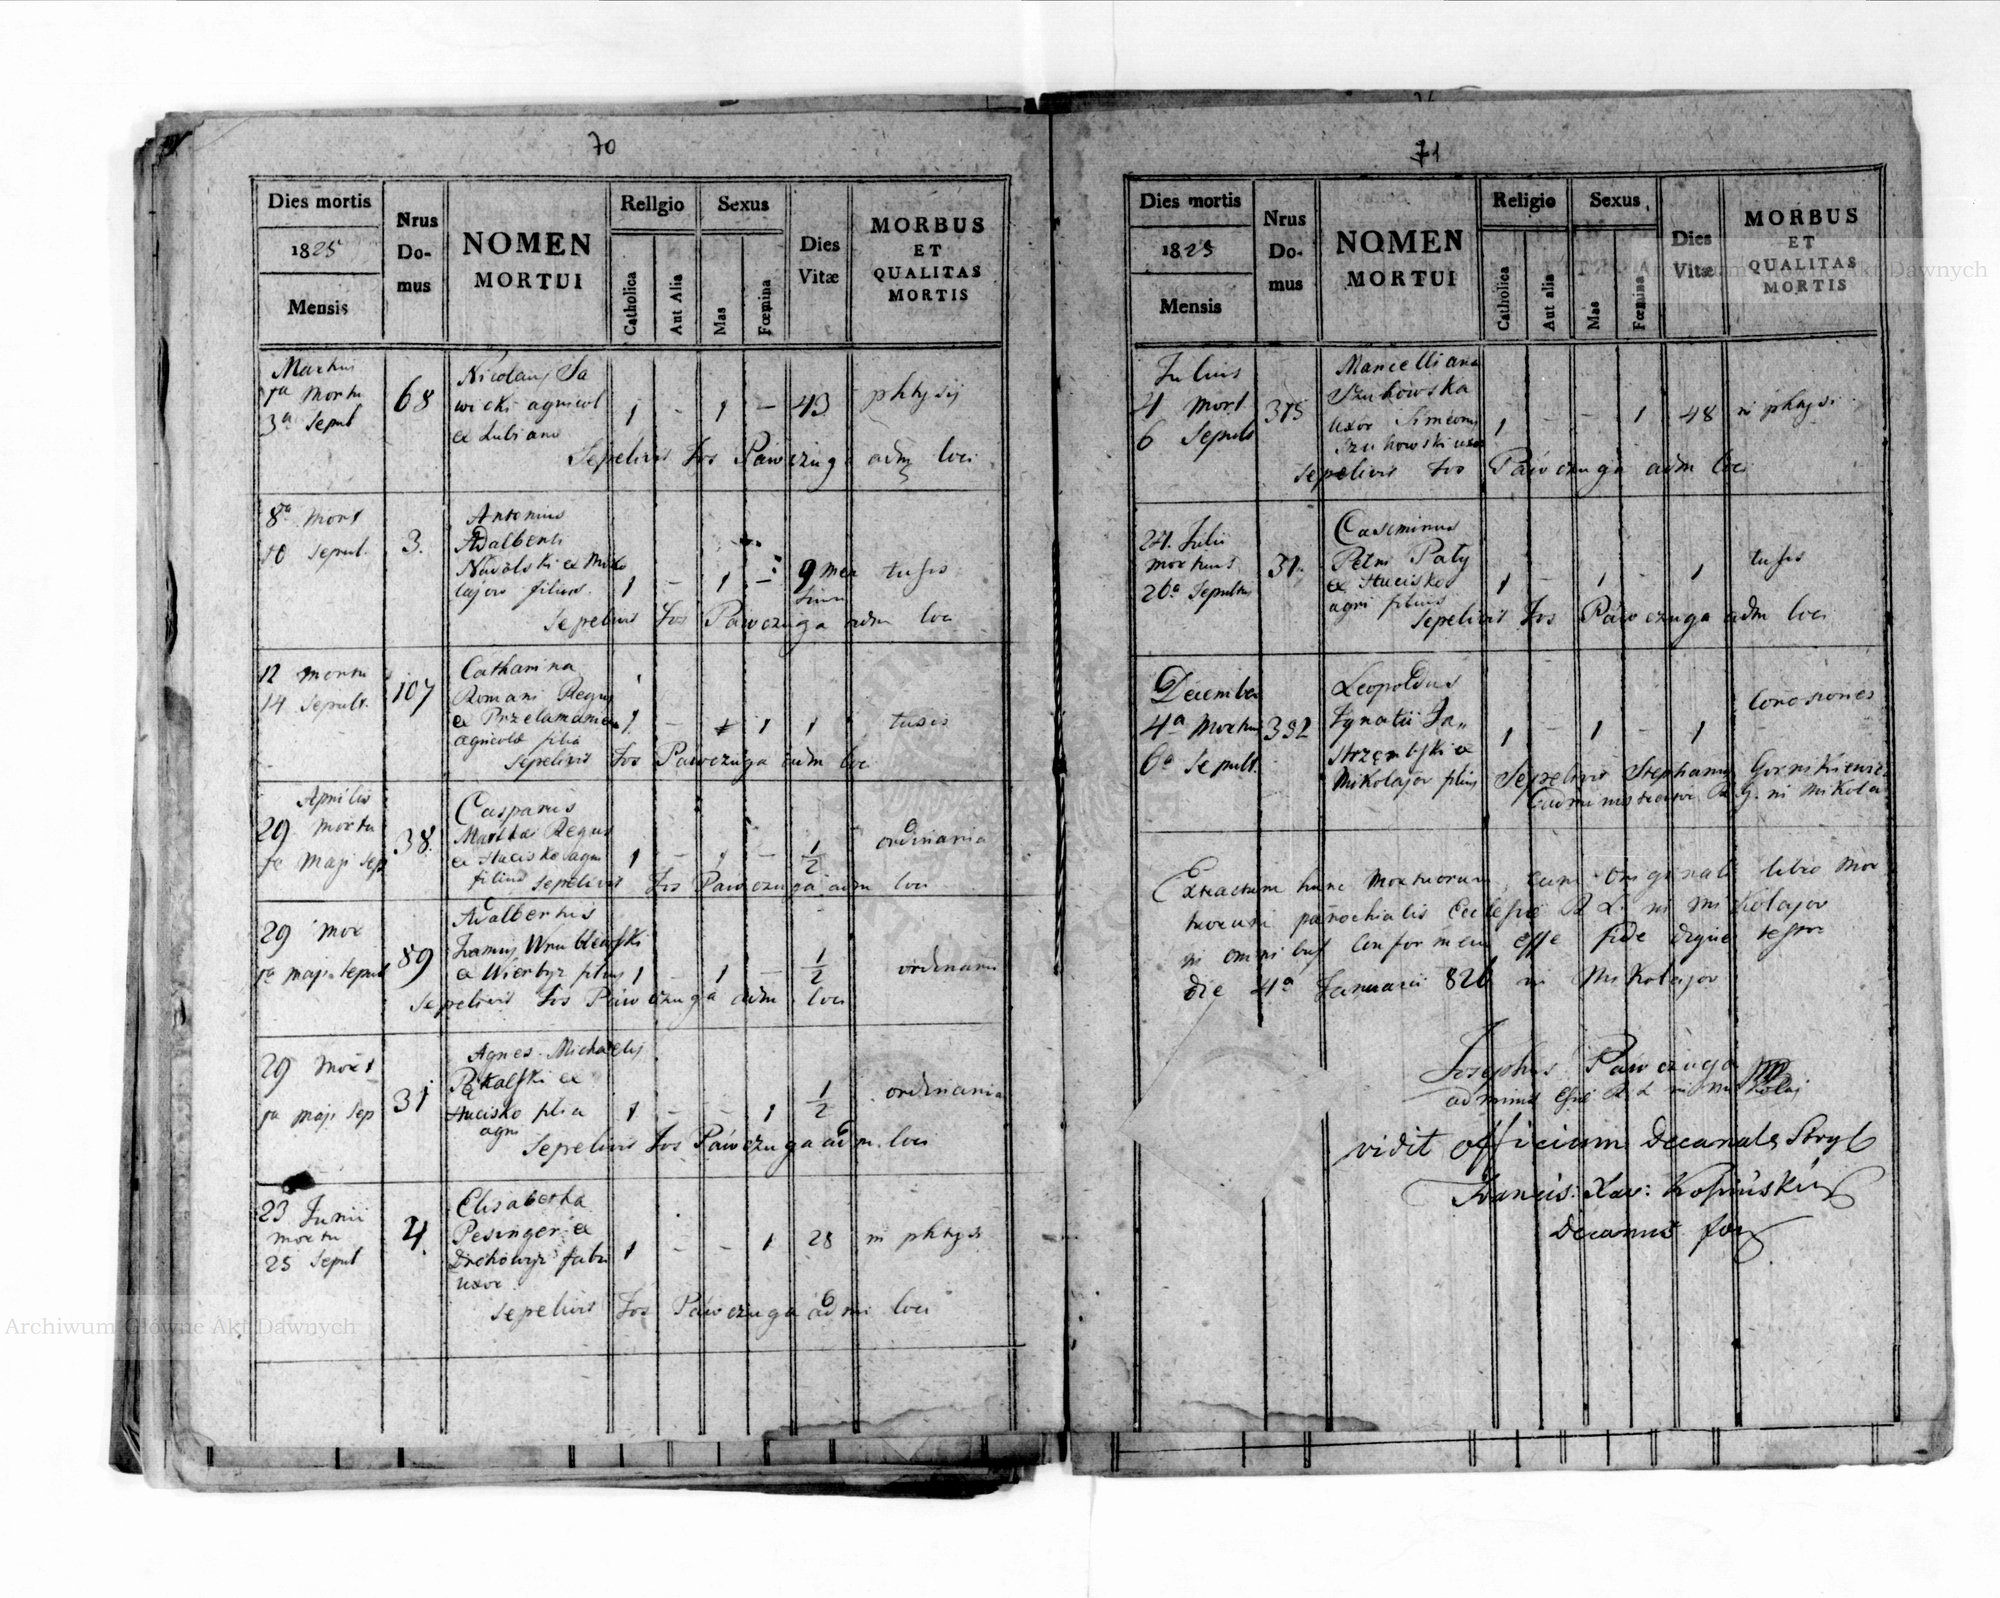 70
Dies mortis
1825
Mensis
Nrus Do-mus
NOMEN
MORTUI
Religio
Catholica
Aut Alia
Sexus
Mas
Fœmina
Dies
Vitæ
MORBUS
ET
QUALITAS
MORTIS
Martius
1a Mortu
3a Sepul
68
Nicolaus Sa
wicki agricol
ex Lubiana
1 - 1 - 43
phtysis
Sepelivit Jos Pawczuga adm loci
8va Mort
10 Sepul.
3.
Antonius
Adalberti
ex Miko
lajow filius.
1 - 1 - 9 men
tusis
Sepelivit Jos Pawczuga adm loci
12 Mortu
14 Sepult.
107
Catharina
Romani Regus
agricolæ filia
1 - 1 1
tusis
Sepelivit Jos Pawczuga adm loci
Aprilis
29 Mortu
1a Maji Sep
38.
Casparus
Matthæi Regus
ex Hucisko agri
filius Sepelivit Jos Pawczuga adm loci
1 - 1 - 1/2
ordinaria
29 Mor
1a maji Sepul
89
Adalbertus
ex Wierbyz filius
1 - 1 - 1/2
ordinaria
Sepelivit Jos Pawczuga adm loci
29 Mort
1a maji Sep
31
Agnes Michaelis
Pękalski ex
Hucisko filia
agri
1 - - 1 1/2
ordinaria
Sepelivit Jos Pawczuga adm. loci
23 Junii
mortu
25 Sepul
4.
Elisabetha
Pesinger ex
Drohowyz fabri
uxor
1 - - 1 28
in phtysi
Sepelivit Jos Pawczuga adm loci
71
Dies mortis
1825
Mensis
Nrus Do-mus
NOMEN
MORTUI
Religio
Catholica
Aut alia
Sexus
Mas
Fœmina
Dies
Vitæ
MORBUS
ET
QUALITAS
MORTIS
Julius
4 Mort
6 Sepult
375
Marcelliana
Szuhowska
uxor Simeonis
Szuhowski
1 - - 1 48
in phtysi
Sepelivit Jos Pawczuga adm loci
24. Julii
mortuus
26a Sepultus
31.
Casimirus
Petri Paty
ex Hucisko
agri filius
1 - 1 - 1
tusis
Sepelivit Jos Pawczuga adm loci
December
4a Mortuus
6a Sepult.
392
Leopoldus
Ignatii Ja„
strzęmbski ex
Mikolajow filius
1 - 1 - 1
Sepelivit Stephanus Gornikiewicz
administrator R. G. in Mikola
Extractum hunc Mortuorum, cum originali libro Mor
tuorum parochialis Ecclesiæ R. L. in Mikolajow
in omnibus conformem esse fide digne testor
die 4a Januarii 826 in Mikolajow
Josephus Pawczuga
adminis R. L in Mikolaj
vidit officium Decanale Stryi
Francis: Xav: Kosinski
Decanus for
Archiwum Główne Akt Dawnych
Archiwum Główne Akt Dawnych